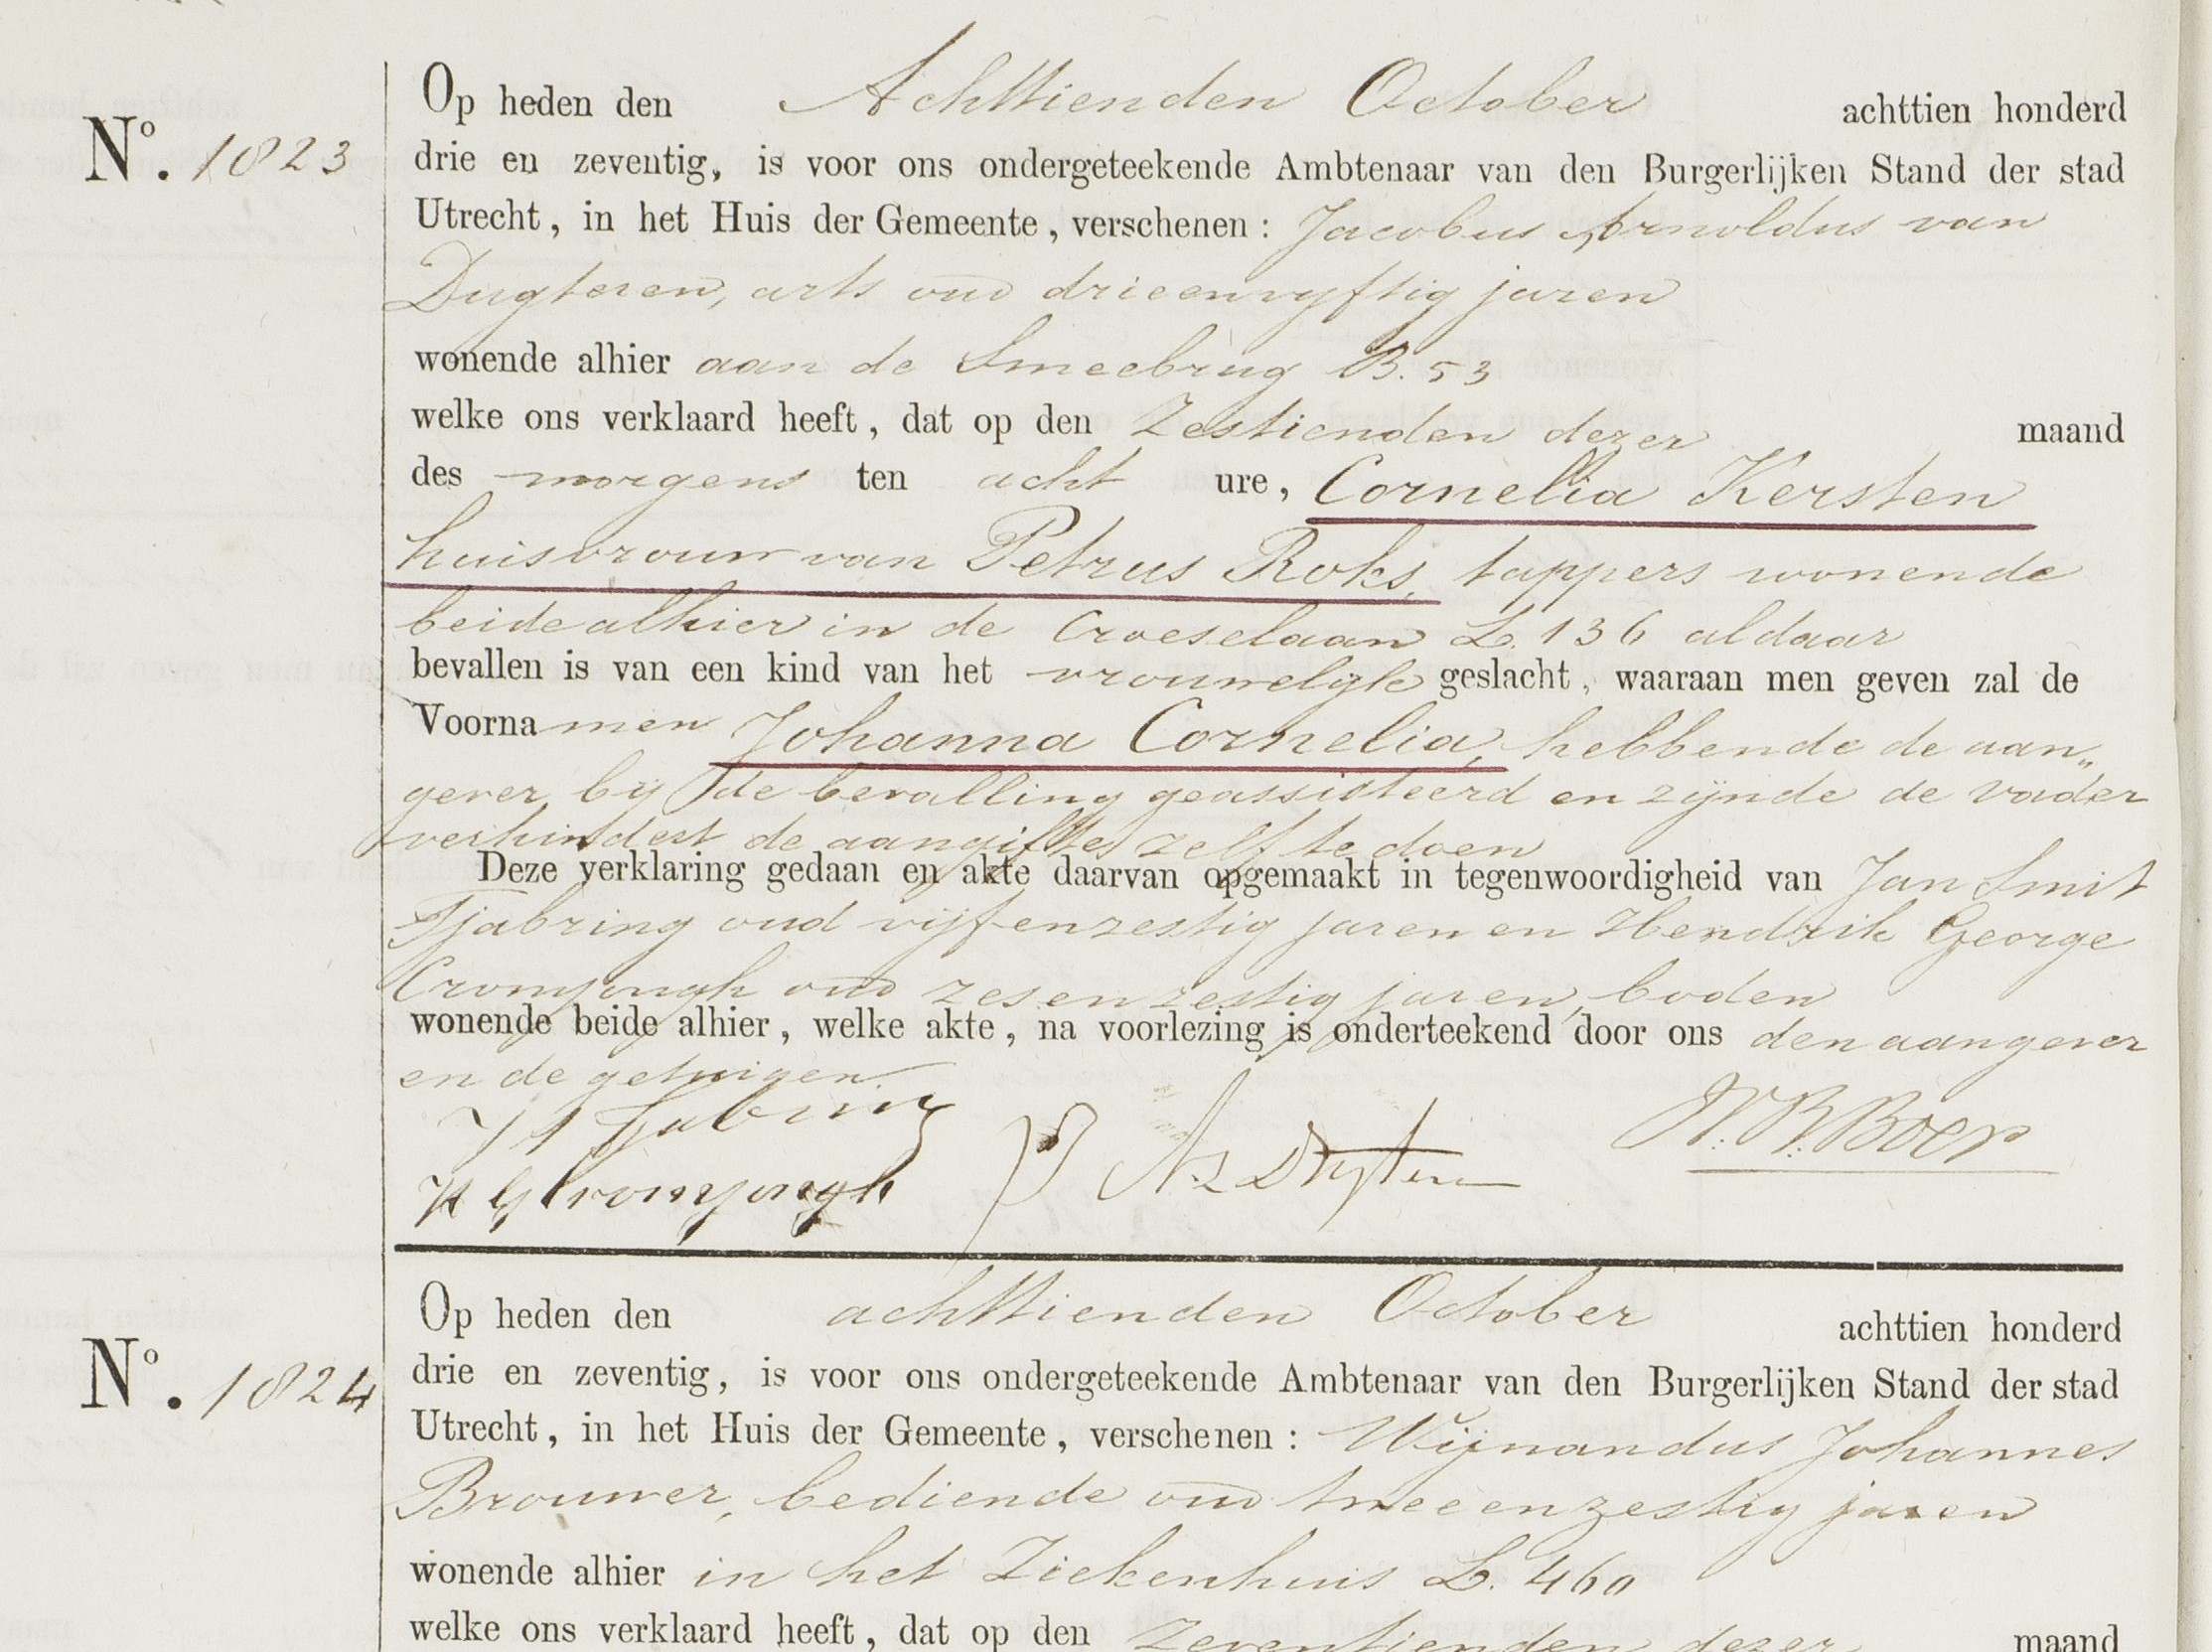 Op heden den Achttienden October achttien honderd
No. 1823
drie en zeventig, is voor ons ondergeteekende Ambtenaar van den Burgerlijken Stand der stad
Utrecht, in het Huis der Gemeente, verschenen: Jacobus Arnoldus van
Dugteren, arts oud drieenvyftig jaren
wonende alhier aan de Smeebrug B. 53
welke ons verklaard heeft, dat op den Zestienden dezer maand
des morgens ten acht ure, Cornelia Kersten
huisvrouw van Petrus Roks, tappers wonende
beide alhier in de Croeselaan L. 136 aldaar
bevallen is van een kind van het vrouwelyk geslacht, waaraan men geven zal de
Voornamen Johanna Cornelia, hebbende de aan„
gever by de bevalling geassisteerd en zijnde de vader
verhindert de aangifte zelf te doen
Deze verklaring gedaan en akte daarvan opgemaakt in tegenwoordigheid van Jan Smit
Tjabring oud vijfenzestig jaren en Hendrik George
Cromjongh oud zesenzestig jaren, boden
wonende beide alhier, welke akte, na voorlezing is onderteekend door ons den aangever
en de getuigen
Tjabring
H G Cromjongh
W. B. Boer
Op heden den achttienden October achttien honderd
No. 1824
drie en zeventig, is voor ons ondergeteekende Ambtenaar van den Burgerlijken Stand der stad
Utrecht, in het Huis der Gemeente, verschenen: Wijnandus Johannes
Brouwer, bediende oud tweeenzestig jaren
wonende alhier in het Ziekenhuis L. 460
welke ons verklaard heeft, dat op den Zeventienden dezer maand